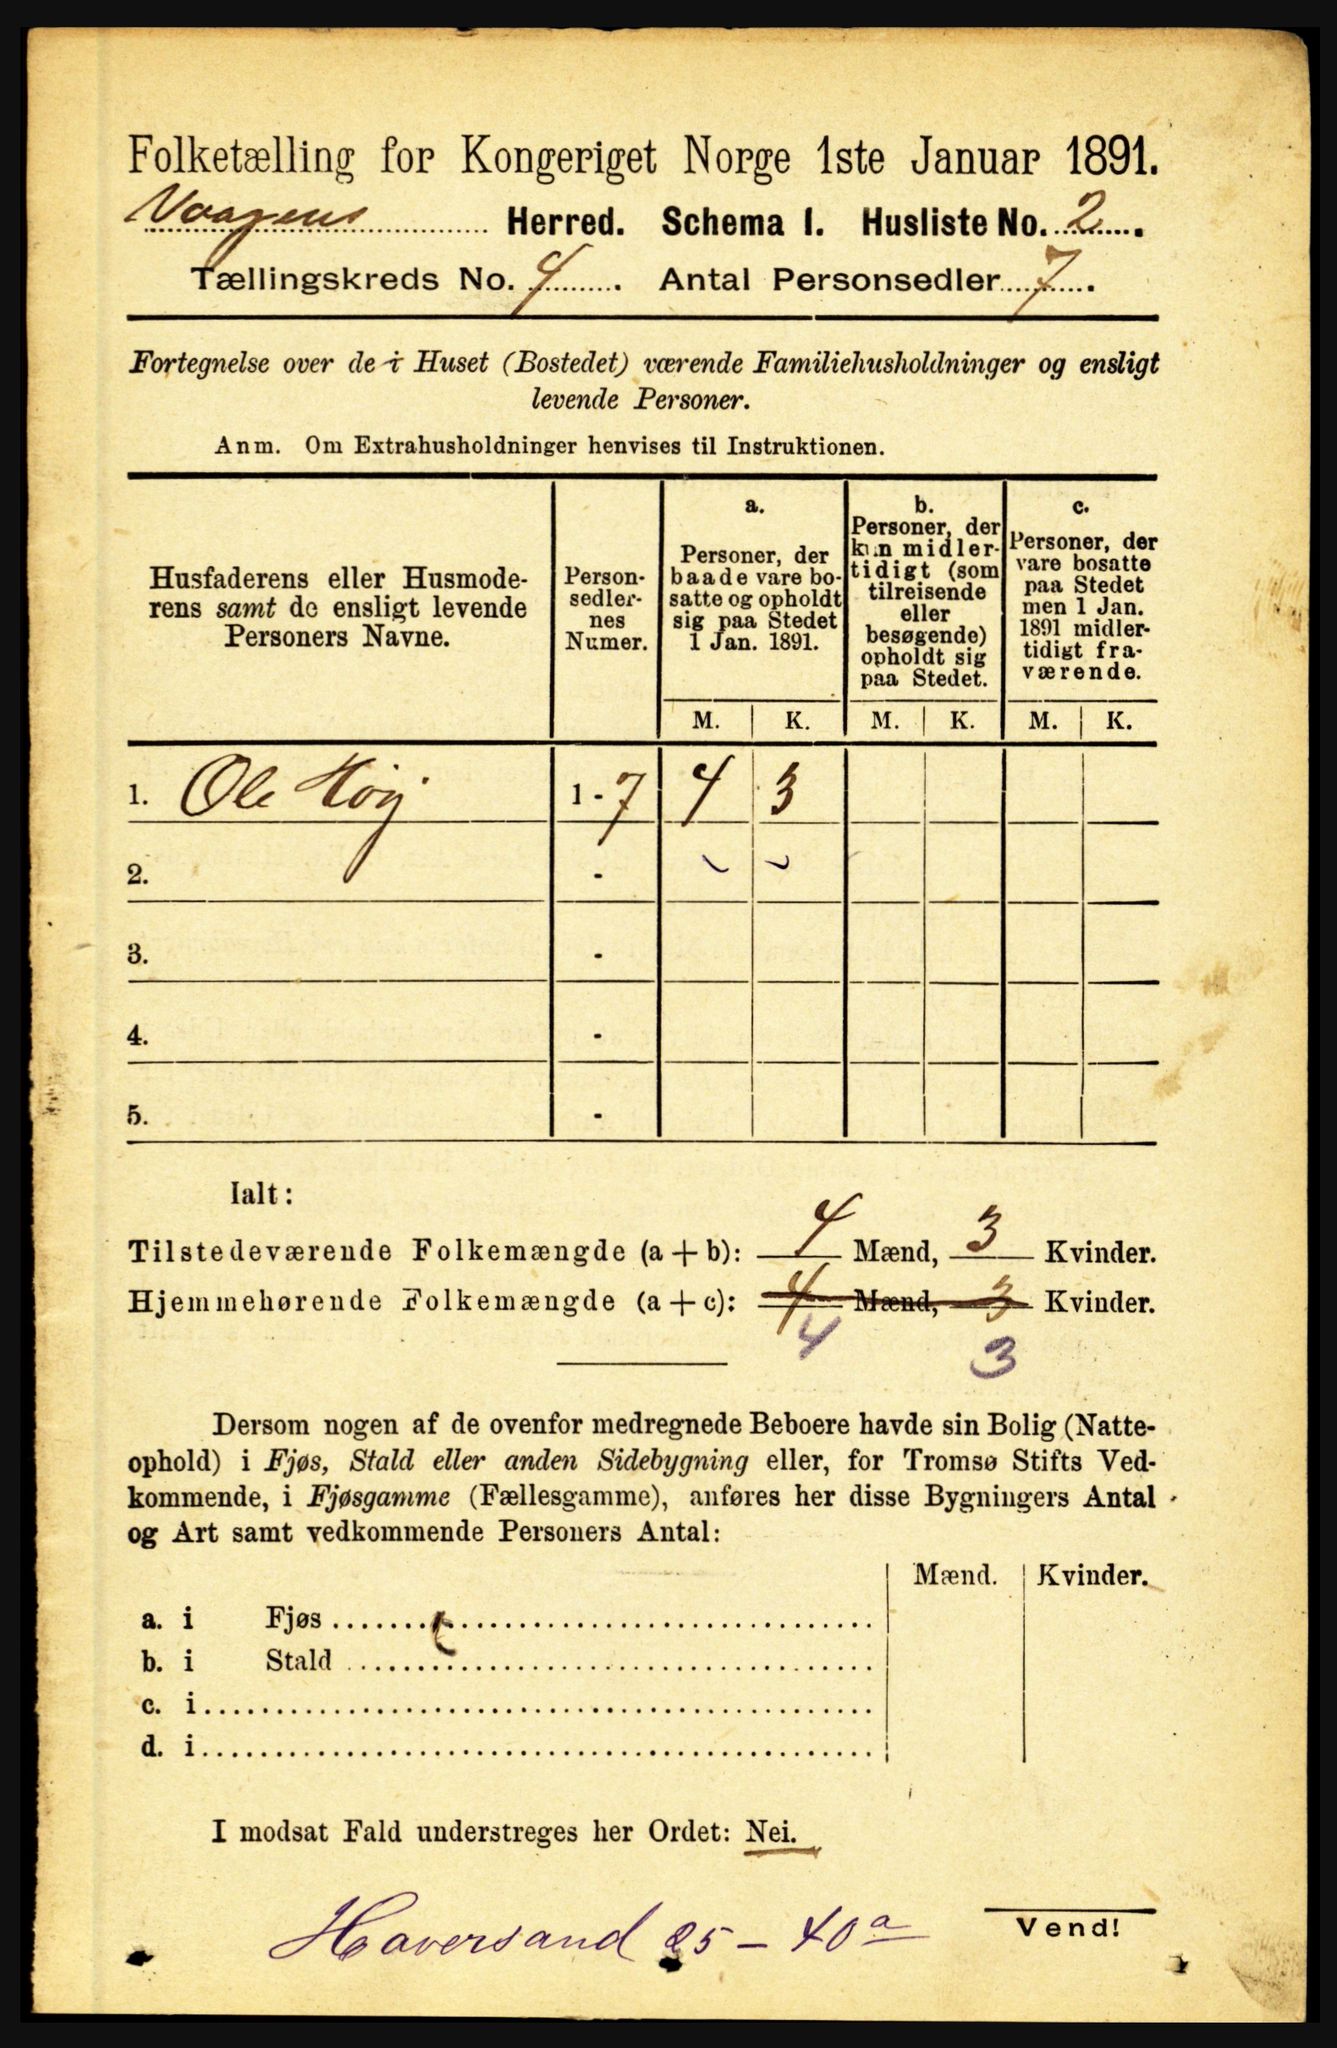 Folketælling for Kongeriget Norge 1ste Januar 1891.
Vaagens Herred. Schema I. Husliste No. 2.
Tællingskreds No. 4. Antal Personsedler 7.
Fortegnelse over de i Huset (Bostedet) værende Familiehusholdninger og ensligt
levende Personer.
Anm. Om Extrahusholdninger henvises til Instruktionen.
Husfaderens eller Husmode-
rens samt de ensligt levende
Personers Navne.
Person-
sedler-
nes
Numer.
a.
Personer, der
baade vare bo-
satte og opholdt
sig paa Stedet
1 Jan. 1891.
b.
Personer, der
kun midler-
tidigt (som
tilreisende
eller
besøgende)
opholdt sig
paa Stedet.
c.
Personer, der
vare bosatte
paa Stedet
men 1 Jan.
1891 midler-
tidigt fra-
værende.
M. K. M. K. M. K.
1. Ole Høij 1 - 7 4 3
2. -
3. -
4. -
5. -
Ialt:
Tilstedeværende Folkemængde (a + b): 4 Mænd, 3 Kvinder.
Hjemmehørende Folkemængde (a + c): 4 Mænd, 3 Kvinder.
4 3
Dersom nogen af de ovenfor medregnede Beboere havde sin Bolig (Natte-
ophold) i Fjøs, Stald eller anden Sidebygning eller, for Tromsø Stifts Ved-
kommende, i Fjøsgamme (Fællesgamme), anføres her disse Bygningers Antal
og Art samt vedkommende Personers Antal:
Mænd. Kvinder.
a. i Fjøs
b. i Stald
c. i
d. i
I modsat Fald understreges her Ordet: Nei.
Haversand 25 - 40 a
Vend!